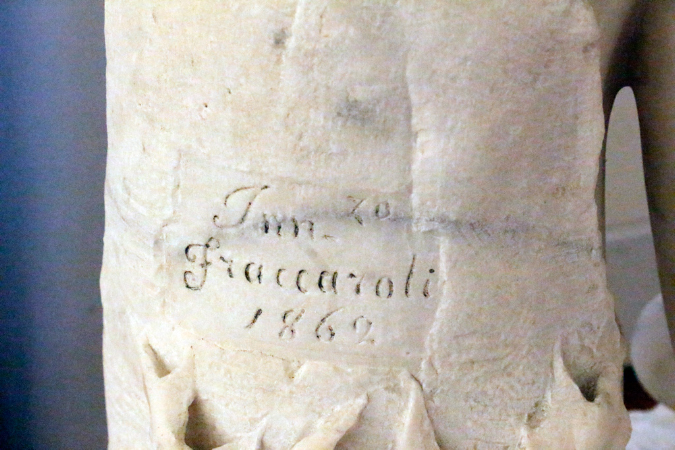 Inn. zo
Fraccaroli
1862